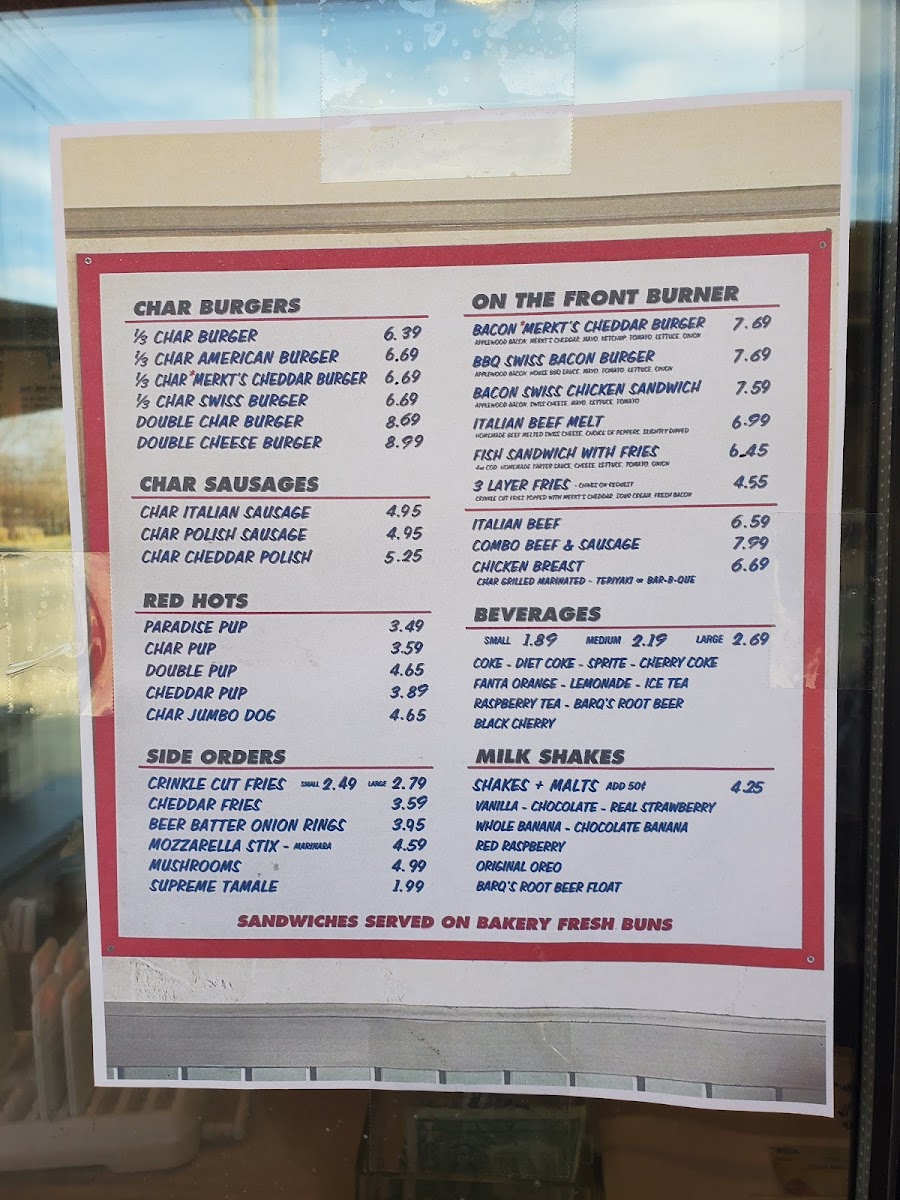 CHAR BURGERS
⅓ CHAR BURGER 6.39
⅓ CHAR AMERICAN BURGER 6.69
⅓ CHAR *MERKT'S CHEDDAR BURGER 6.69
⅓ CHAR SWISS BURGER 6.69
DOUBLE CHAR BURGER 8.69
DOUBLE CHEESE BURGER 8.99
CHAR SAUSAGES
CHAR ITALIAN SAUSAGE 4.95
CHAR POLISH SAUSAGE 4.95
CHAR CHEDDAR POLISH 5.25
RED HOTS
PARADISE PUP 3.49
CHAR PUP 3.59
DOUBLE PUP 4.65
CHEDDAR PUP 3.89
CHAR JUMBO DOG 4.65
SIDE ORDERS
CRINKLE CUT FRIES SMALL 2.49 LARGE 2.79
CHEDDAR FRIES 3.59
BEER BATTER ONION RINGS 3.95
MOZZARELLA STIX - MARINARA 4.59
MUSHROOMS 4.99
SUPREME TAMALE 1.99
ON THE FRONT BURNER
BACON *MERKT'S CHEDDAR BURGER 7.69
APPLEWOOD BACON, MERKT'S CHEDDAR, MAYO, KETCHUP, TOMATO, LETTUCE, ONION
BBQ SWISS BACON BURGER 7.69
APPLEWOOD BACON, HOUSE BBQ SAUCE, MAYO, TOMATO, LETTUCE, ONION
BACON SWISS CHICKEN SANDWICH 7.59
APPLEWOOD BACON, SWISS CHEESE, MAYO, LETTUCE, TOMATO
ITALIAN BEEF MELT 6.99
HOMEMADE BEEF, MELTED SWISS CHEESE, CHOICE OF PEPPERS, SLIGHTLY DIPPED
FISH SANDWICH WITH FRIES 6.45
4oz COD, HOMEMADE TARTER SAUCE, CHEESE, LETTUCE, TOMATO, ONION
3 LAYER FRIES - CHIVES ON REQUEST 4.55
CRINKLE CUT FRIES TOPPED WITH MERKT'S CHEDDAR, SOUR CREAM, FRESH BACON
ITALIAN BEEF 6.59
COMBO BEEF & SAUSAGE 7.99
CHICKEN BREAST 6.69
CHAR GRILLED MARINATED - TERIYAKI OR BAR-B-QUE
BEVERAGES
SMALL 1.89 MEDIUM 2.19 LARGE 2.69
COKE - DIET COKE - SPRITE - CHERRY COKE
FANTA ORANGE - LEMONADE - ICE TEA
RASPBERRY TEA - BARQ'S ROOT BEER
BLACK CHERRY
MILK SHAKES
SHAKES + MALTS ADD 50¢ 4.25
VANILLA - CHOCOLATE - REAL STRAWBERRY
WHOLE BANANA - CHOCOLATE BANANA
RED RASPBERRY
ORIGINAL OREO
BARQ'S ROOT BEER FLOAT
SANDWICHES SERVED ON BAKERY FRESH BUNS